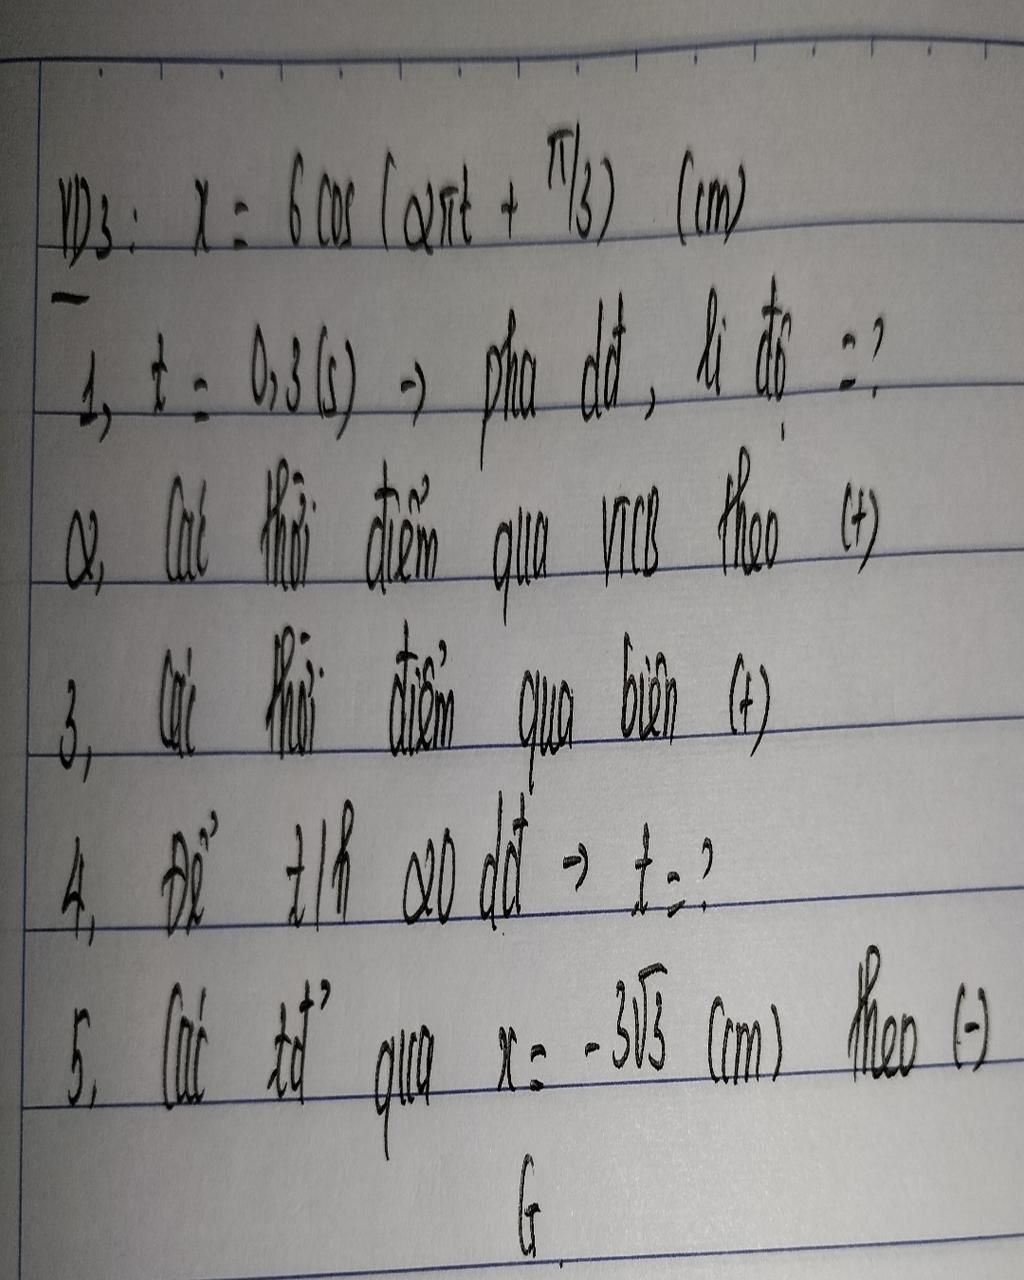 VD3: x = 6 cos (2πt + π/3) (cm)
1, t = 0,3 (s) → pha dđ, li độ = ?
2, Các thời điểm qua VTCB theo (+)
3, Các thời điểm qua biên (+)
4, Để t/h 20 dđ → t = ?
5, Các tđ' qua x = -3√3 (cm) theo (-)
G